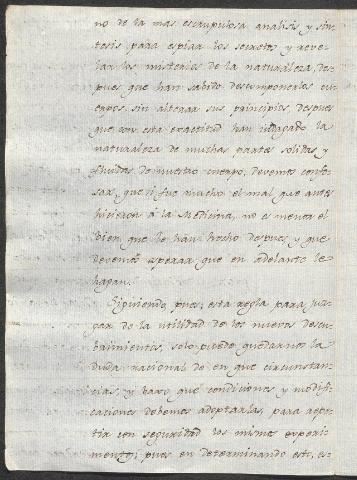 no de la mas escrupulosa analisis y sin-
tesis, para espiar los secretos y reve-
lar los misterios de la naturaleza, des-
pues que han sabido descomponer los cu-
erpos, sin alterar sus principios, despues
que con esta exactitud han indagado la
naturaleza de muchas partes solidas y
fluidas de nuestro cuerpo, devemos confe-
sar, que si fue mucho el mal que antes
hicieron à la Medicina, no es menor el
bien que le han hecho despues, y que
devemos esperar que en adelante le
hagan.
Siguiendo pues, esta regla para juz-
gar de la utilidad de los nuevos descu-
brimientos, solo puede quedarnos la
duda racional de en que circunstan-
cias, y baxo que condiciones y modifi-
caciones debemos adoptarlas, para repe-
tir con seguridad los mismos experi-
mentos; pues en determinando esto, es-